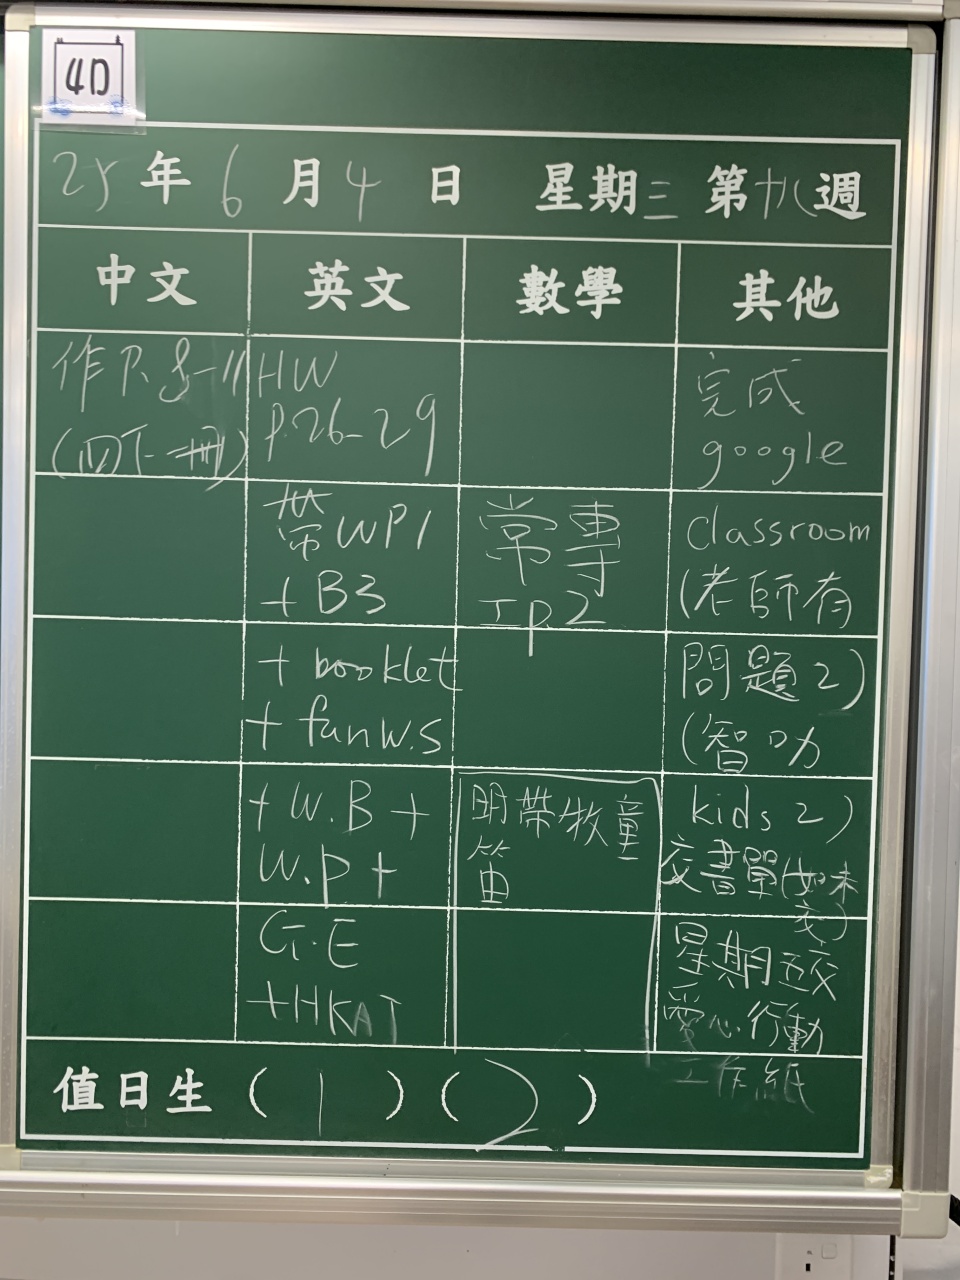 4D
25 年 6 月 4 日 星期三 第十八週
中文 英文 數學 其他
作 P. 8-11
(四下一冊)
HW
P.26-29
帶 WP1
+ B3
+ booklet
+ fun W.S
+ W.B +
W.P +
G.E
+HKAT
常專
工p.2
明帶牧童
笛
完成
google
classroom
(老師有
問題2)
(智叻
kids 2)
交書單(如未
交)
星期五交
愛心行動
工作紙
值日生 ( 1 ) ( 2 )